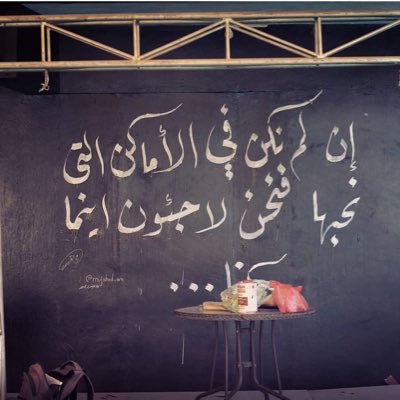 إن لم نكن في الأماكن التي
نحبها فنحن لاجئون اينما
كنا...